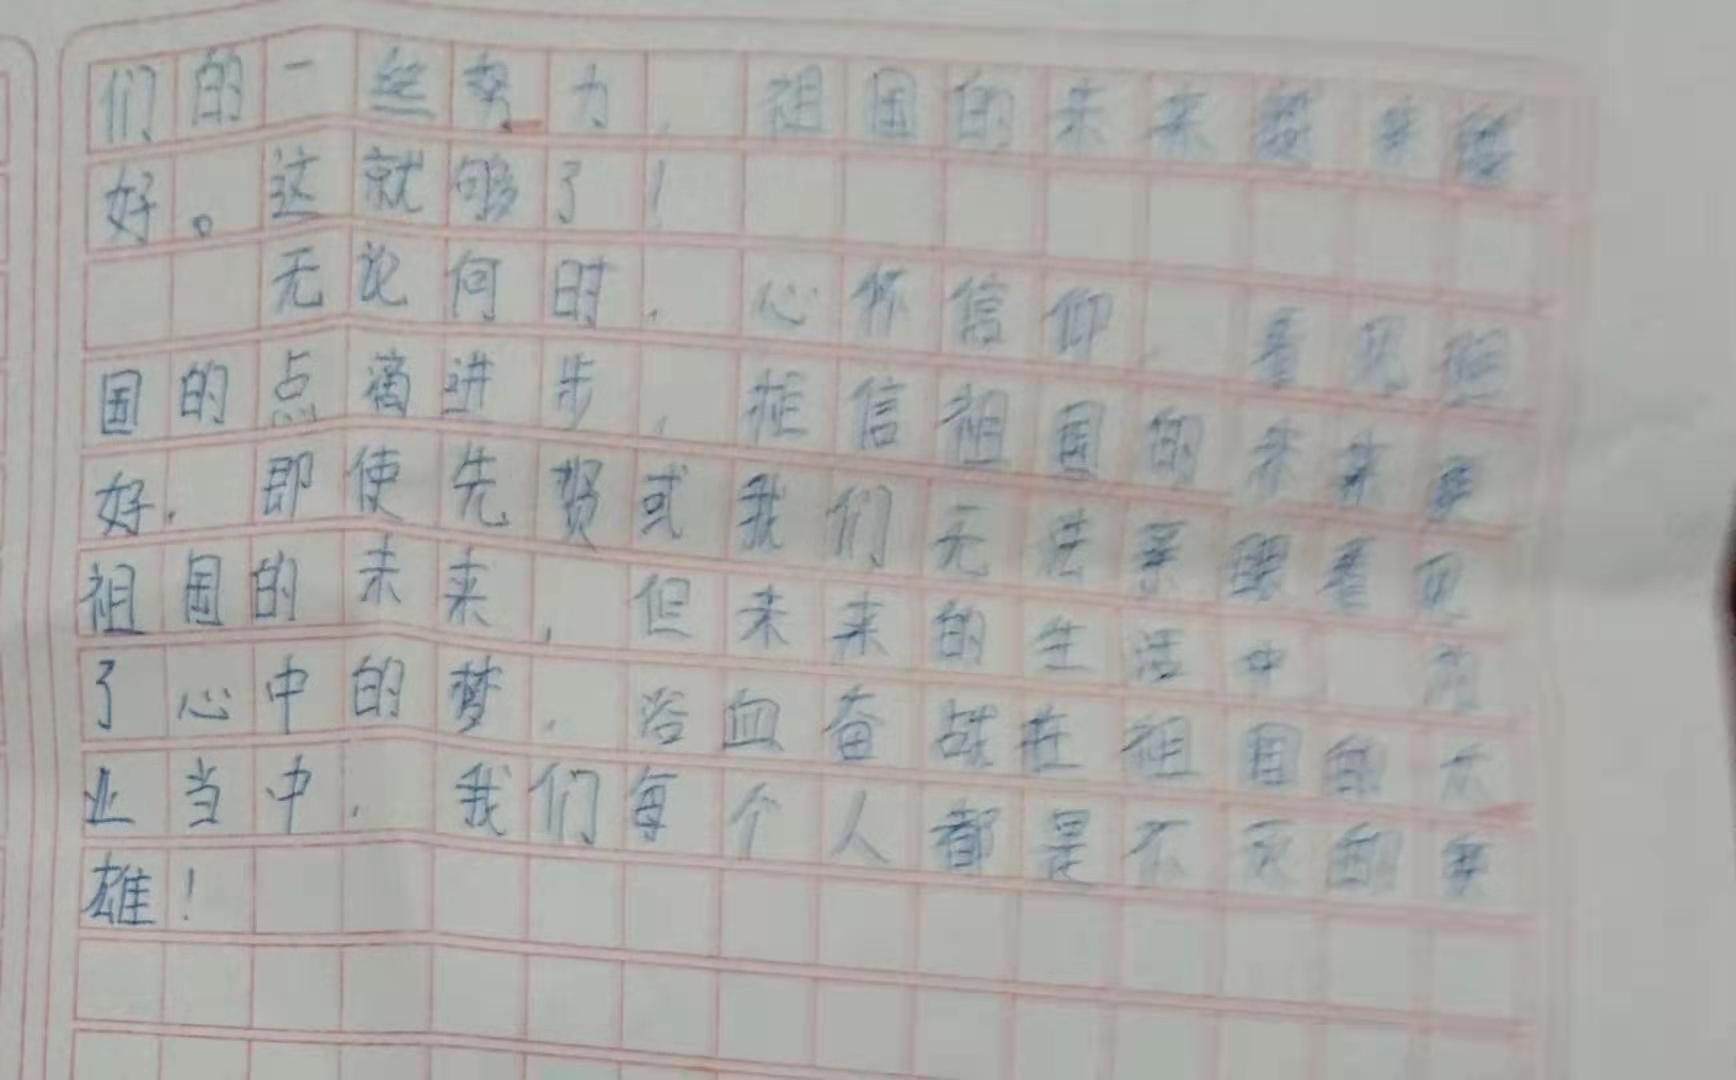 们的一丝努力,祖国的未来变来越
好。这就够了!
无论何时,心怀信仰,看见祖
国的点滴进步,相信祖国的未来更
好。即使先贤或我们无法亲眼看见
祖国的未来,但未来的生活中
了心中的梦,浴血奋战在祖国的大
业当中。我们每个人都是不灭的英
雄!